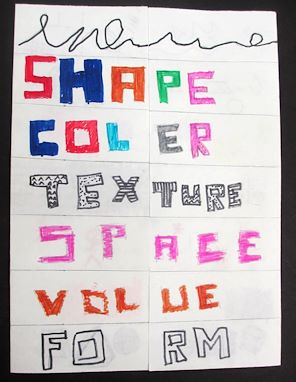 SHAPE
COLER
TEXTURE
SPACE
VOLUE
FORM